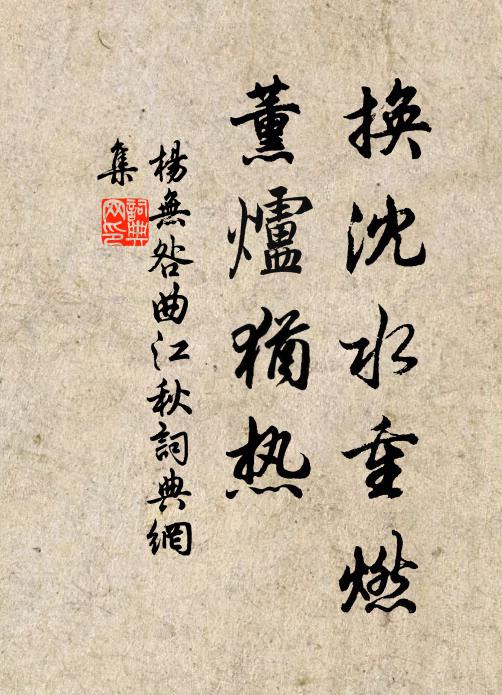 換沈水重燃
薰爐猶热
楊無咎曲江秋詞典網
集
詞典網印